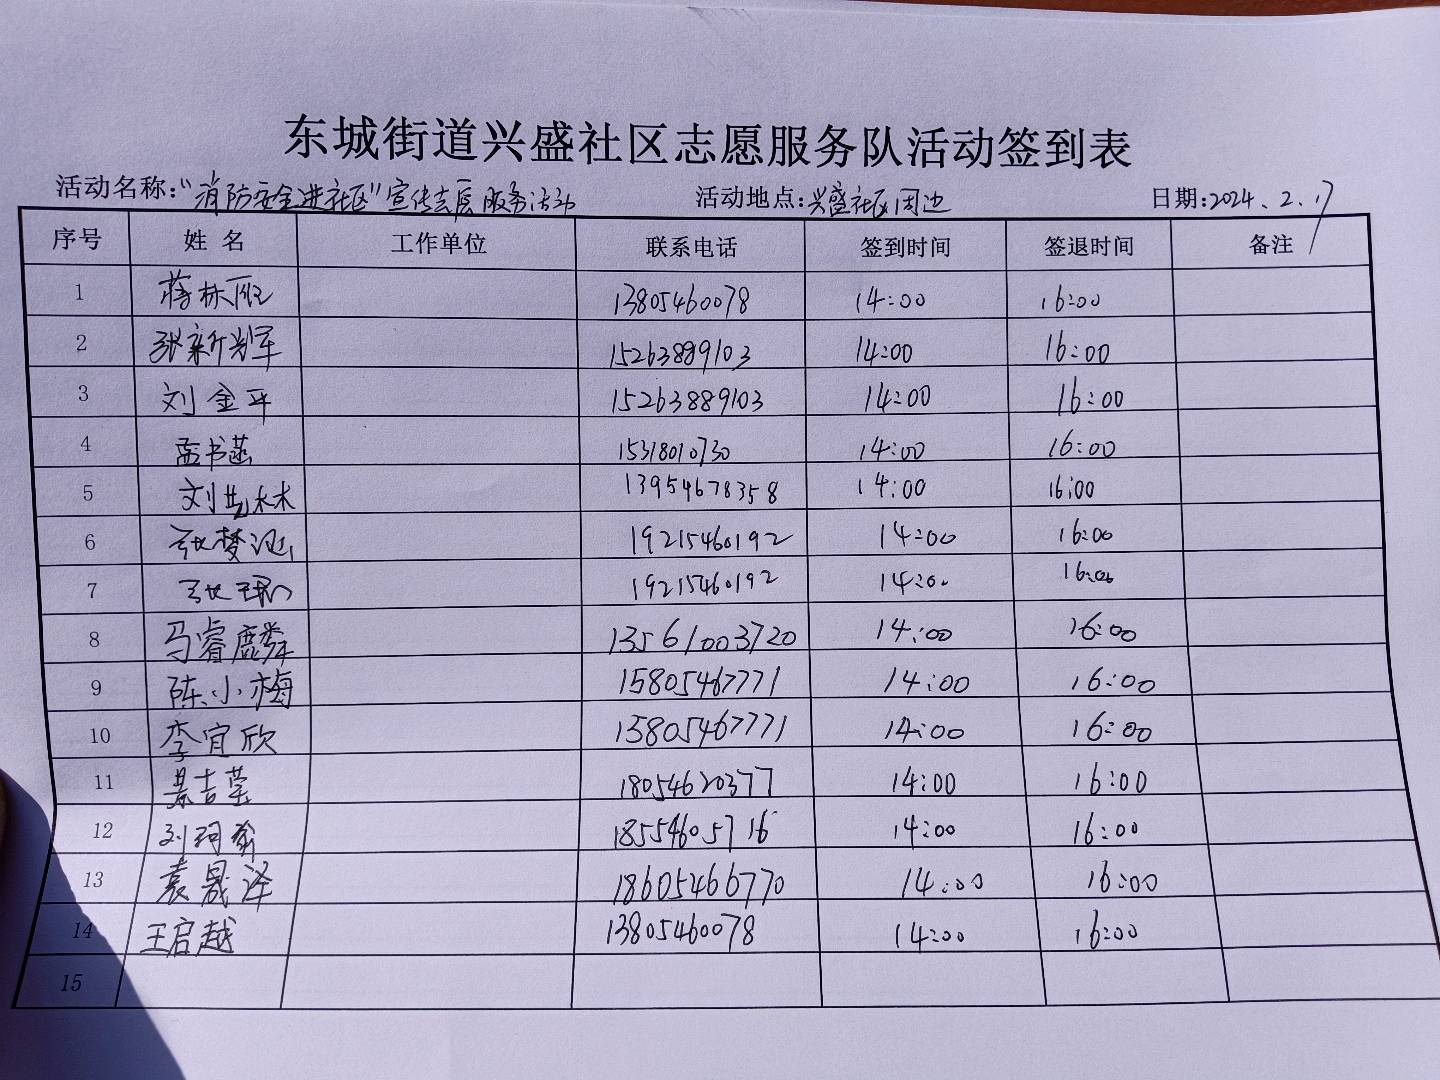 东城街道兴盛社区志愿服务队活动签到表
活动名称:"消防安全进社区"宣传志愿服务活动 活动地点:兴盛社区周边 日期:2024.2.17
序号 姓名 工作单位 联系电话 签到时间 签退时间 备注
1 蒋林 13805460078 14:00 16:00
2 张新军 15263889103 14:00 16:00
3 刘金平 15263889103 14:00 16:00
4 孟书菡 15318010730 14:00 16:00
5 刘艺林 13954678358 14:00 16:00
6 张梦 19215460192 14:00 16:00
7 张 19215460192 14:00 16:00
8 马睿麟 13561003720 14:00 16:00
9 陈小梅 15805467771 14:00 16:00
10 李宜欣 15805467771 14:00 16:00
11 吉莹 18054620377 14:00 16:00
12 刘珂 18554605716 14:00 16:00
13 袁晟泽 18605466770 14:00 16:00
14 王启越 13805460078 14:00 16:00
15